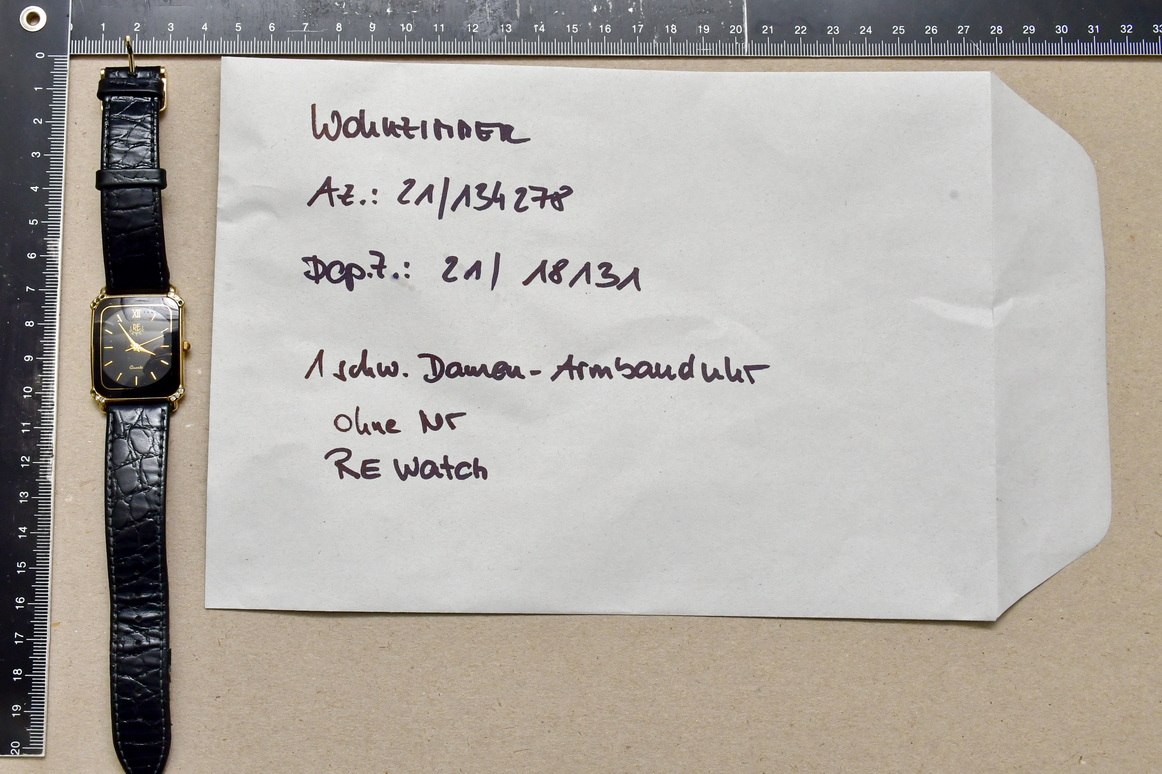 0 1 2 3 4 5 6 7 8 9 10 11 12 13 14 15 16 17 18 19 20 21 22 23 24 25 26 27 28 29 30 31 32 33
0 1 2 3 4 5 6 7 8 9 10 11 12 13 14 15 16 17 18 19 20
WOHNZIMMER
Az.: 21/134278
Dep.Z.: 21/ 18131
1 schw. Damen-Armbanduhr
ohne Nr
RE Watch
XII
RE
Quartz